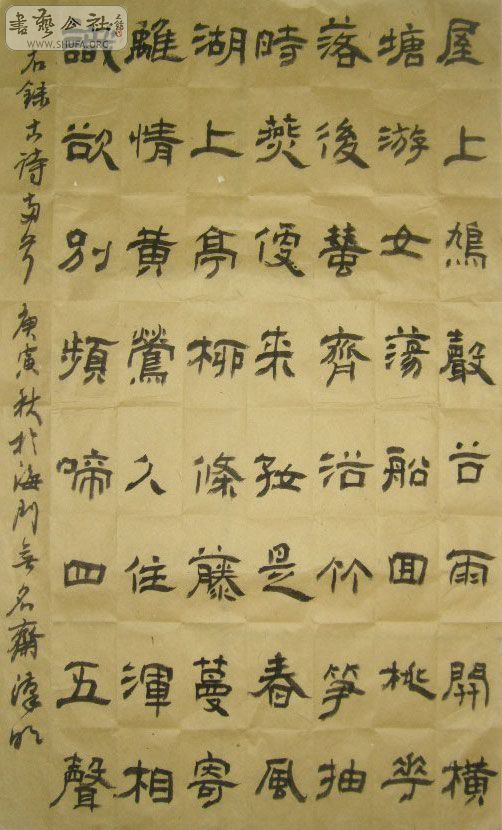 屋上鳩聲谷雨開橫
塘游女蕩船回桃華
落後蠶齊浴竹笋抽
時燕便來好是春風
湖上亭柳條藤蔓寄
離情黃鶯久住渾相
識欲別頻啼四五聲
右錄古詩兩首 庚寅秋於海門無名齋漢明
書藝公社
WWW.SHUFA.ORG